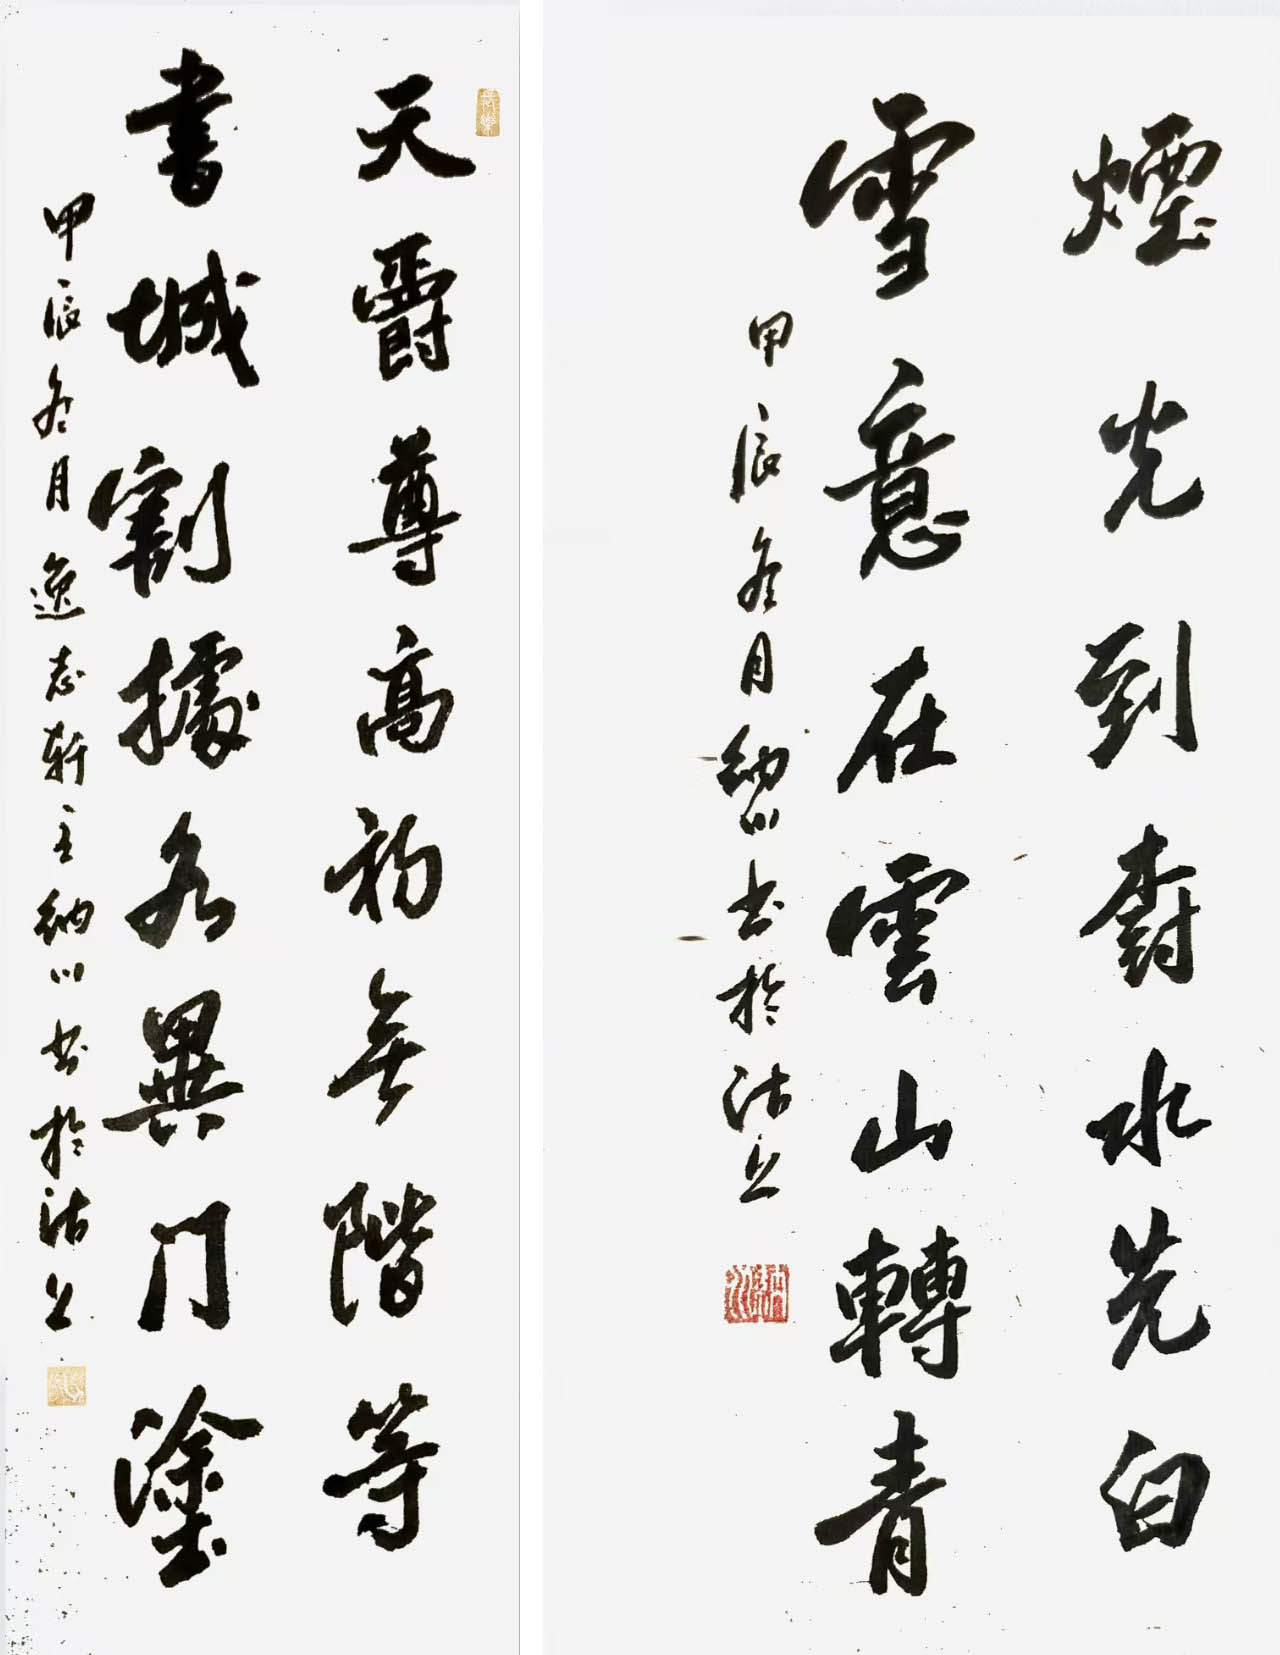 煙光到樹水先白
雪意在雲山轉青
甲辰冬月納川書於沽上
天爵尊高初無階等
書城割據各異門塗
甲辰冬月逸志軒主納川書於沽上